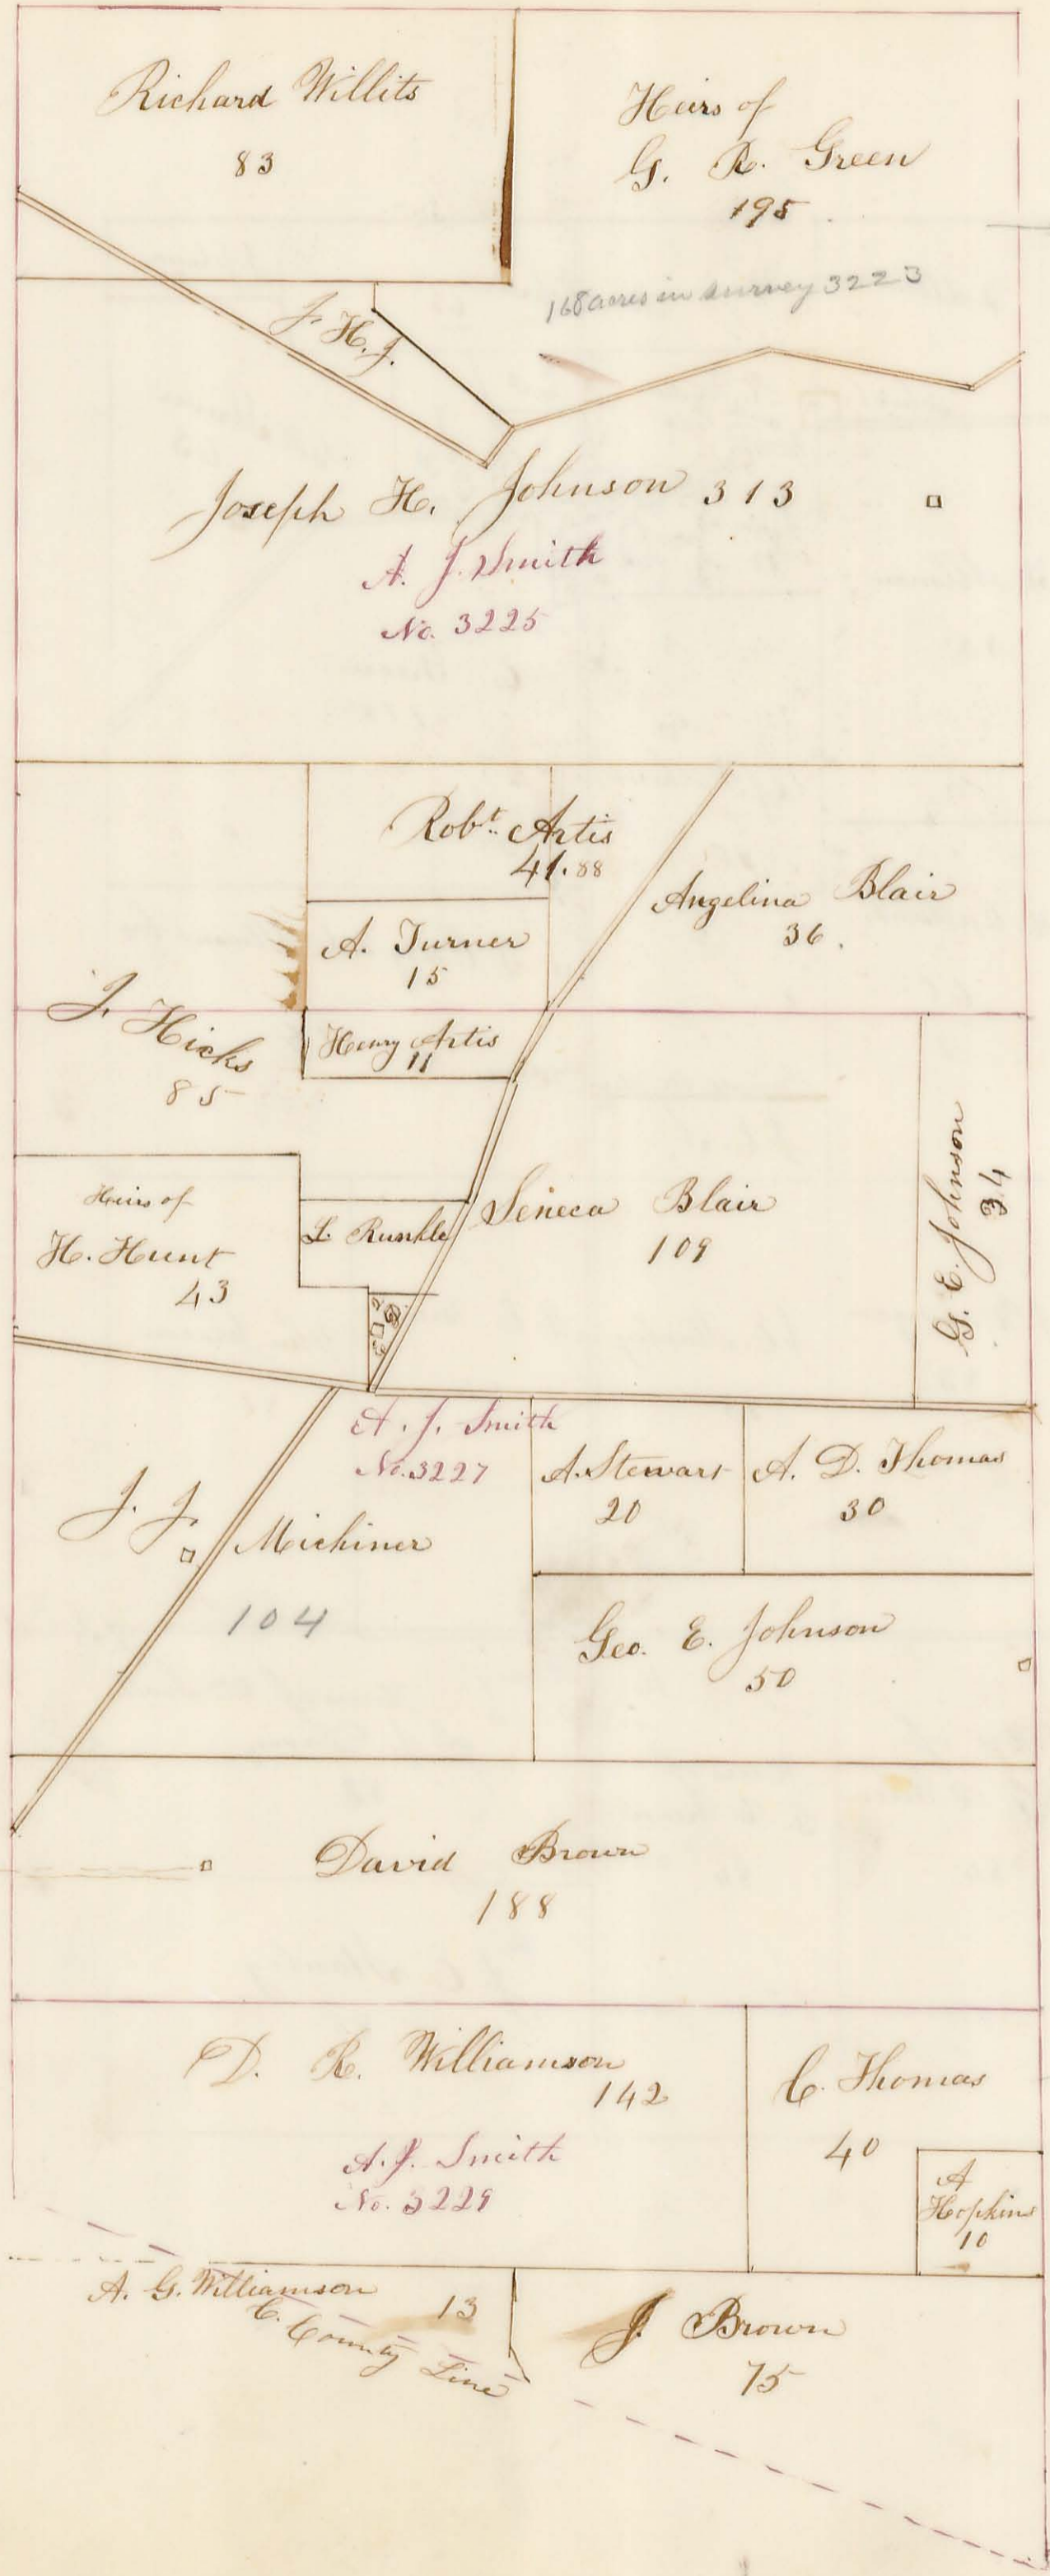 Richard Willits
83
Heirs of
G. R. Green
195
168 acres in survey 3223
J. H. J.
Joseph H. Johnson 313
A. J. Smith
No. 3225
Robt. Artis
41.88
Angelina Blair
36.
A. Turner
15
J. Hicks
85
Henry Artis
11
Heirs of
H. Hunt
43
L. Runkle
Seneca Blair
109
G. E. Johnson
34
A. J. Smith
No. 3227
A. Stewart
20
A. D. Thomas
30
J. J. Michiner
104
Geo. E. Johnson
50
David Brown
188
D. R. Williamson
142
A. J. Smith
No. 3229
C. Thomas
40
A
Hopkins
10
A. G. Williamson 13
C. County Line
J. Brown
75